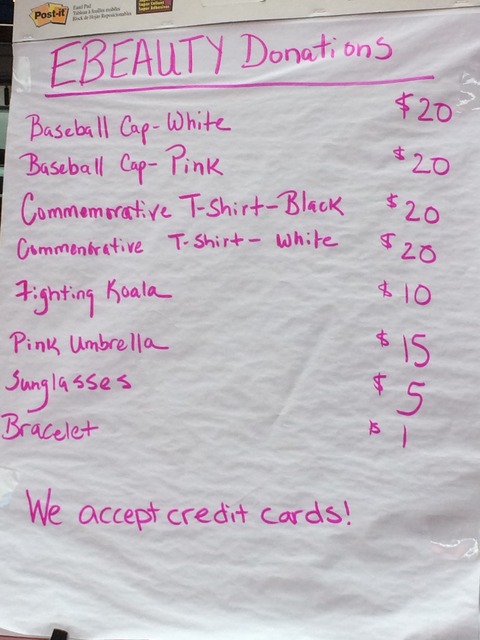 Post-it
Easel Pad
Tableau à feuilles mobiles
Block de Hojas Reposicionables
Super Sticky
EBEAUTY Donations
Baseball Cap-White $20
Baseball Cap-Pink $20
Commemorative T-Shirt-Black $20
Commemorative T-Shirt- White $20
Fighting Koala $10
Pink Umbrella $15
Sunglasses $5
Bracelet $1
We accept credit cards!